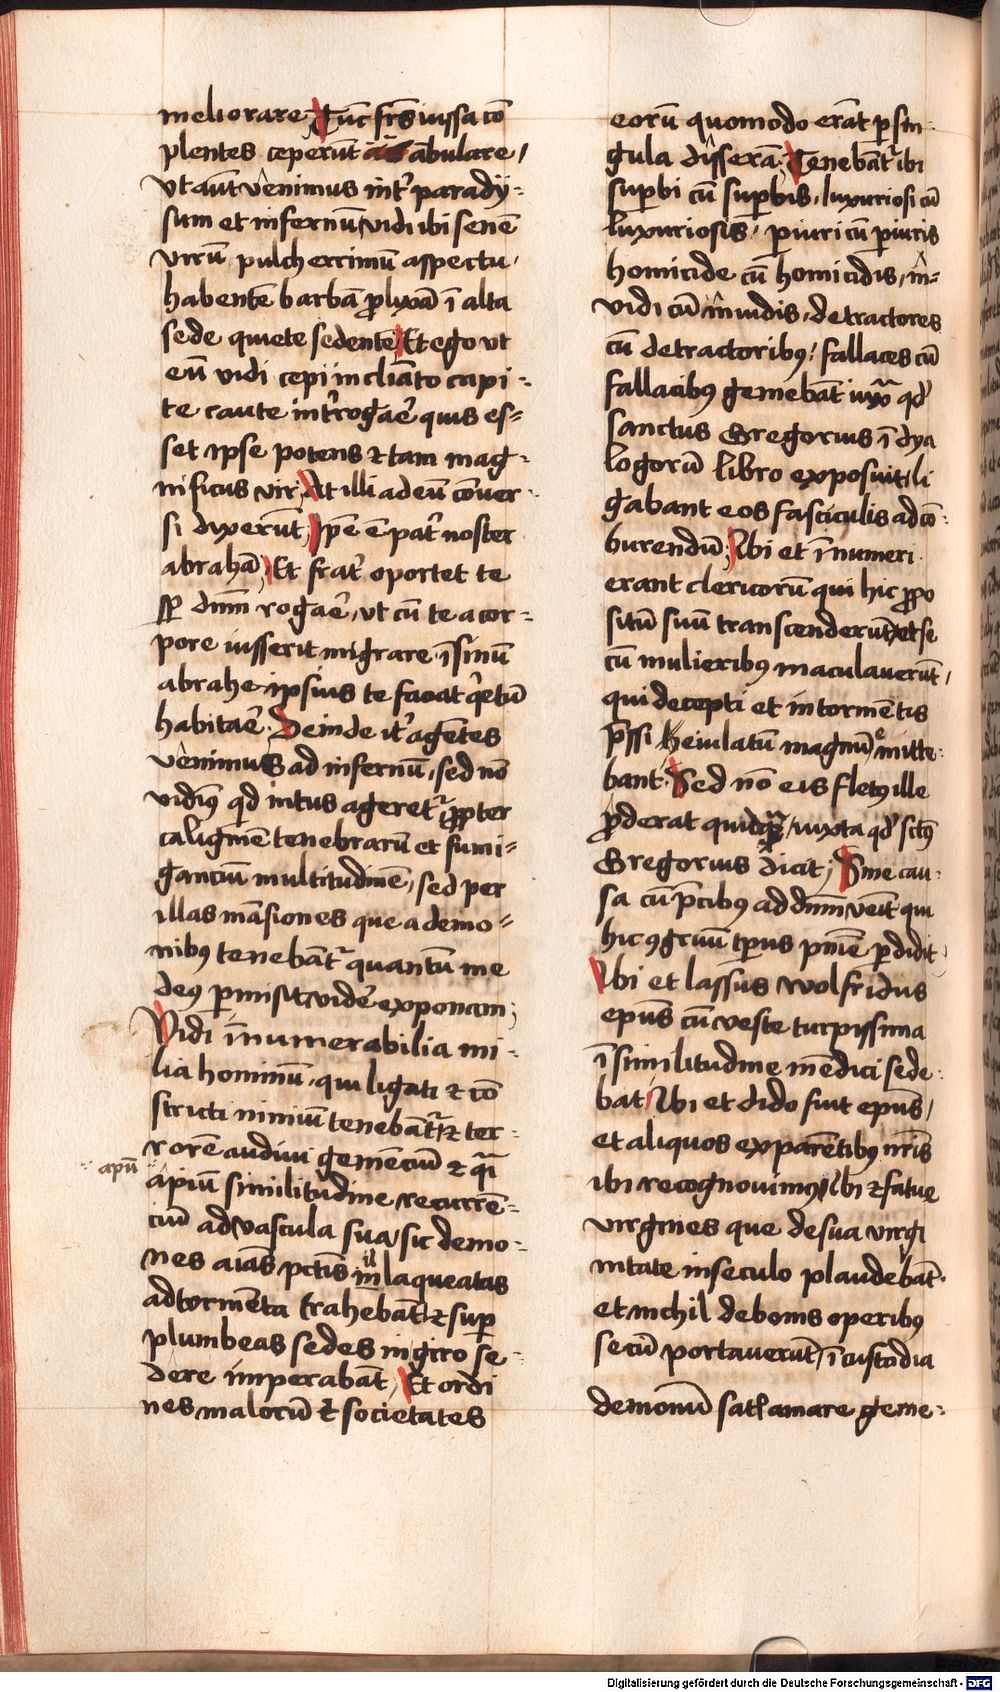 meliorare Tūc frēs iussa cō
plentes ceperūt abulare /
vt aūt venimus int' parady=
sum et infernū vidi ibi senē
virū pulcherrimū aspectu
habentē barbā plixā ī alta
sede quiete sedentē Et ego vt
eū vidi cepi incliāto capi=
te caute int'rogae' quis es=
set ipse potens ⁊ tam mag=
nificus vir At illi ad eū cōuer
si dixerūt Ip̄e ē pat' noster
abrahā Et frat' oportet te
sp̄ dnm̄ rogae' vt cū te a cor=
pore iusserit migrare ī sinū
abrahe ipsius te faciat q'etū
habitae' Deinde it' agētes
venimus ad infernū sed nō
vidim9 qd intus ageret' ꝓpter
caliginē tenebrarū et fumi=
ganciū multitudinē sed per
illas māsiones que a demo=
nib9 tenebāt' quantū me
de9 p̱misit vide' exponam ;
Vidi īnumerabilia mi=
lia hominū qui ligati ⁊ cō
stricti nimiū tenebāt' ⁊ ter=
rorē audiui gemēciū ⁊ q̄i
apū
apiū similitudine recurrē=
ciū ad vascula sua sic demo=
nes aīas pctīs illaqueatas
ad tormēta trahebāt ⁊ sup̱
plumbeas sedes in giro se=
dere imperabāt Et ordi
nes malorū ⁊ societates
eorū quomodo erāt p̱ sin
gula disserā Tenebāt' ibi
sup̱bi cū sup̱bis luxuriosi cū
luxuriosis p̱iuri cū p̱iuris
homicide cū homicidis in=
vidi cū inuidis detractores
cū detractorib9 fallaces cū
fallacib9 gemebāt iuxa qd
sanctus Gregorius ī dya
logorū libro exposuit li
gabant eos fasciculis ad cō
burendū Ibi et īnumeri
erant clericorū qui hic ꝓpo
sitū suū transcenderūt et se
cū mulierib9 maculauerūt /
qui decepti et in tormētis
p̄ssi heiulatū magnū emitte
bant Sed nō eis flet9 ille
ꝓderat iuxta qd sctūs
Gregorius dicit ; Sine cau=
sa cū p̄cib9 ad dnm̄ veīt qui
hic 9gruū tp̱us pnīe p̱didit
Ibi et lassus wolfridus
ep̄us cū veste turpissima
ī similitudine mēdici sede=
bat Ibi et dido fuit ep̄us /
et aliquos ex parētib9 nr̄is
ibi recognouimus Ibi ⁊ fatue
virgines que de sua virgi
nitate in seculo plaudebāt
et nichil de bonis operib9
secū portauerūt ī custodia
demonū sat amare geme=
Digitalisierung gefördert durch die Deutsche Forschungsgemeinschaft - DFG